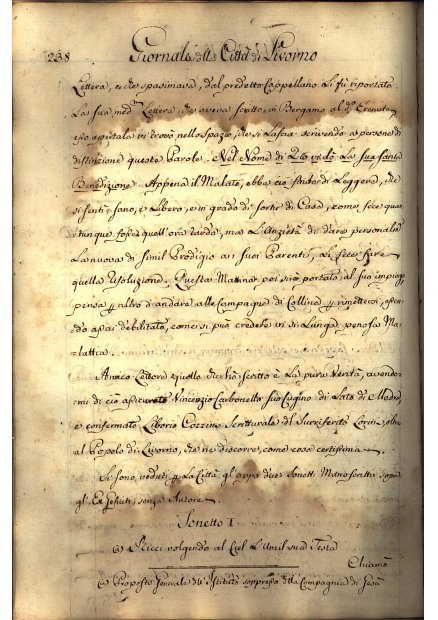 238 Giornale della Città di Livorno
Lettera, e che spasimava, dal predetto Cappellano li fù riportata
La sua med.ma Lettera, che aveva scritto in Bergamo al d.o
ed aperta la trovò nello spazio, che si Lascia scrivendo a persone di
distinzione queste Parole. Nel Nome di Dio vi dò La sua Santa
Benedizione. Appena il Malato, ebbe ciò finito di Leggere, che
si sentì sano, e Libero, e in grado di sortir di Casa, come fece quan
tunque fosse quell'ora tarda, ma L'Anzietà di dare personalm.te
La nuova di simil Prodigio a i suoi Parenti, Li fece fare
quella risoluzione. Questa Mattina poi si è portato al suo impiego
pensa altro di andare alle Campagne di Collina p rimettersi, essen
do assai debilitato, come si può credere in sì Lunga penosa Ma
lattia.
Amico Lettore quello che hò scritto è La pura Verità, avendo
mi di ciò assicurato Vincenzio Carbonello suo Cugino di Lato di Madre,
e confermato Liborio Cozzini Scritturale del Surriferito Lorini, oltre
al Popolo di Livorno, che ne discorre, come cosa certissima.
Si sono veduti p La Città gl'appo due Sonetti Manoscritti sopra
gl'Ex Gesuiti, senza Autore.
Sonetto I
(a) Ricci volgendo al Ciel L'Umil sua Testa
Chiamò
(a) Proposto Generale dell'Istituto soppresso della Compagnia di Gesù